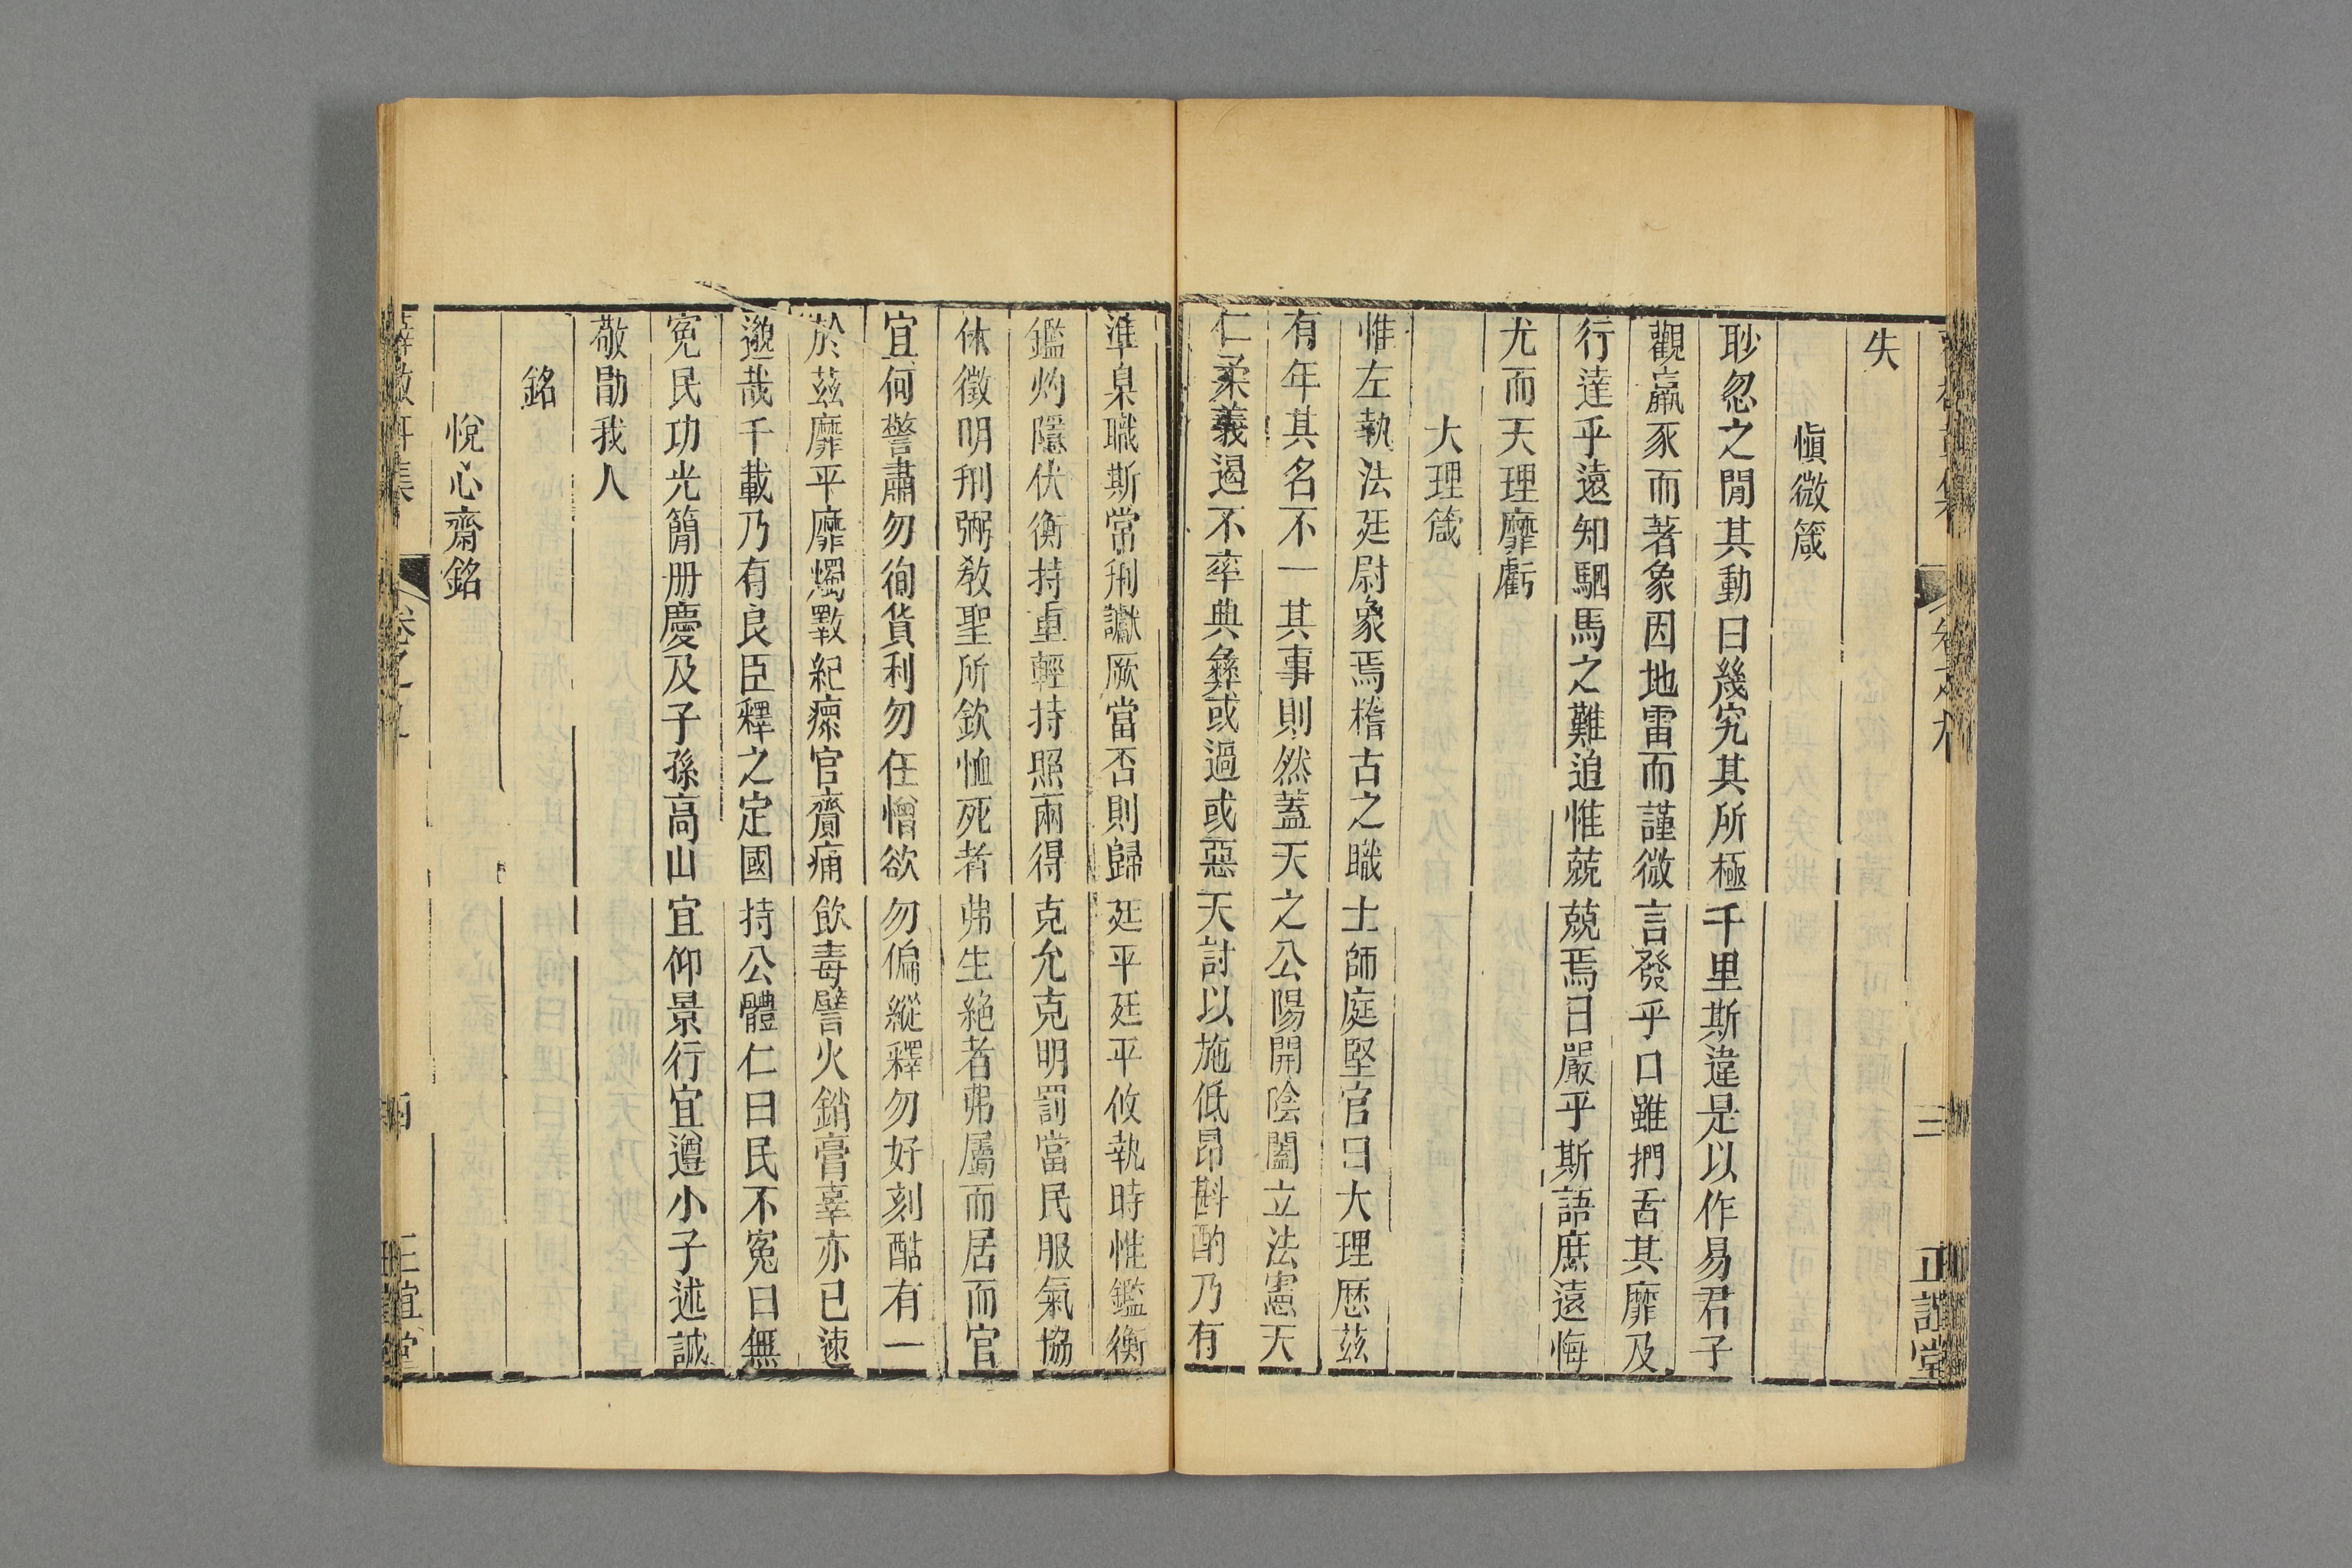 失
慎微箴
眇忽之閒其動曰幾究其所極千里斯違是以作易君子
觀羸豕而著象因地雷而謹微言發乎口雖捫舌其靡及
行達乎遠知駟馬之難追惟兢兢焉日嚴乎斯語庶遠悔
尤而天理靡虧
大理箴
惟左執法廷尉象焉稽古之職士師庭堅官曰大理歷茲
有年其名不一其事則然蓋天之公陽開陰闔立法憲天
仁柔義遏不率典彝或過或惡天討以施低昂斟酌乃有
準臬職斯常刑讞厥當否則歸廷平廷平攸執時惟鑑衡
鑑灼隱伏衡持重輕持照兩得克允克明罰當民服氣協
休徵明刑弼教聖所欽恤死者弗生絕者弗屬而居而官
宜何警肅勿徇貨利勿任憎欲勿偏縱釋勿好刻酷有一
於茲靡平靡燭斁紀瘝官齎痛飲毒譬火銷膏辜亦已速
邈哉千載乃有良臣釋之定國持公體仁曰民不冤曰無
冤民功光簡册慶及子孫高山宜仰景行宜遵小子述誠
敬勖我人
銘
悅心齋銘
正誼堂